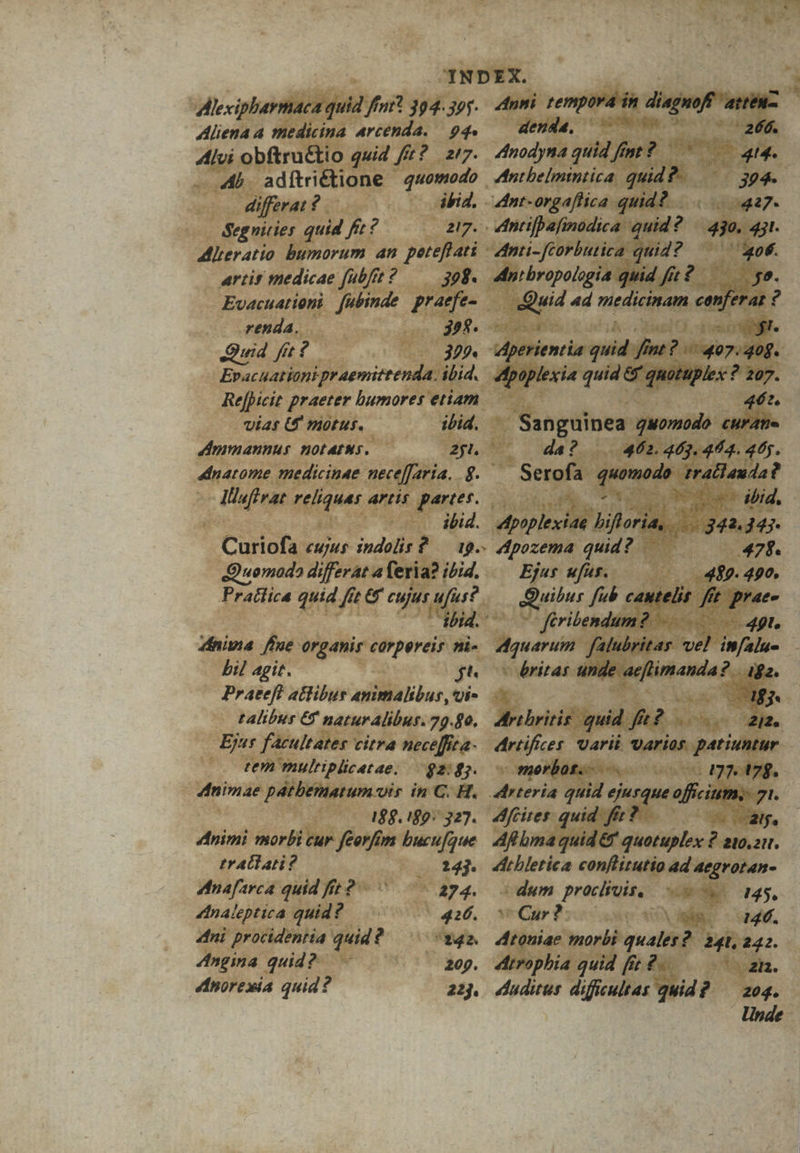 INDEX.
Alexipharmaca quid ſint? 394. 395.
Aliena a medicina arcenda. 94.
Alvi obſtructio quid ſit? 217.
Ab adſtrictione quomodo
differat? ibid.
Segnities quid ſit? 217.
Alteratio humorum an poteſtati
artis medicae ſubſit? 398.
Evacuationi ſubinde praefe-
renda. 398.
Quid ſit? 399.
Evacuationi praemittenda. ibid.
Reſpicit praeter humores etiam
vias & motus. ibid.
Ammannus notatus. 251.
Anatome medicinae neceſſaria. 8.
Illuſtrat reliquas artis partes.
ibid.
Curioſa cujus indolis? 19.
Quomodo differat a ſeria? ibid.
Practica quid ſit & cujus uſus?
ibid.
Anima ſine organis corporeis ni-
hil agit. 51.
Praeeſt actibus animalibus, vi-
talibus & naturalibus. 79. 80.
Ejus facultates citra neceſſita-
tem multiplicatae. 82. 83.
Animae pathematum vis in C. H.
188. 189. 327.
Animi morbi cur ſeorſim hucuſque
tractati? 243.
Anaſarca quid ſit? 274.
Analeptica quid? 426.
Ani procidentia quid? 242.
Angina quid? 209.
Anorexia quid? 223.
Anni tempora in diagnoſi atten-
denda. 266.
Anodyna quid ſint? 414.
Anthelmintica quid? 394.
Ant-orgaſtica quid? 427.
Antiſpaſmodica quid? 430. 431.
Anti-ſcorbutica quid? 406.
Anthropologia quid ſit? 50.
Quid ad medicinam conferat?
51.
Aperientia quid ſint? 407. 408.
Apoplexia quid & quotuplex? 207.
462.
Sanguinea quomodo curan-
da? 462. 463. 464. 465.
Seroſa quomodo tractanda?
ibid.
Apoplexiae hiſtoria. 342. 343.
Apozema quid? 478.
Ejus uſus. 489. 490.
Quibus ſub cautelis ſit prae-
ſcribendum? 491.
Aquarum ſalubritas vel inſalu-
britas unde aeſtimanda? 182.
183.
Arthritis quid ſit? 212.
Artifices varii varios patiuntur
morbos. 177. 178.
Arteria quid ejusque officium. 71.
Aſcites quid ſit? 215.
Aſthma quid & quotuplex? 210. 211.
Athletica conſtitutio ad aegrotan-
dum proclivis. 145.
Cur? 146.
Atoniae morbi quales? 241. 242.
Atrophia quid ſit? 212.
Auditus difficultas quid? 204.
Unde